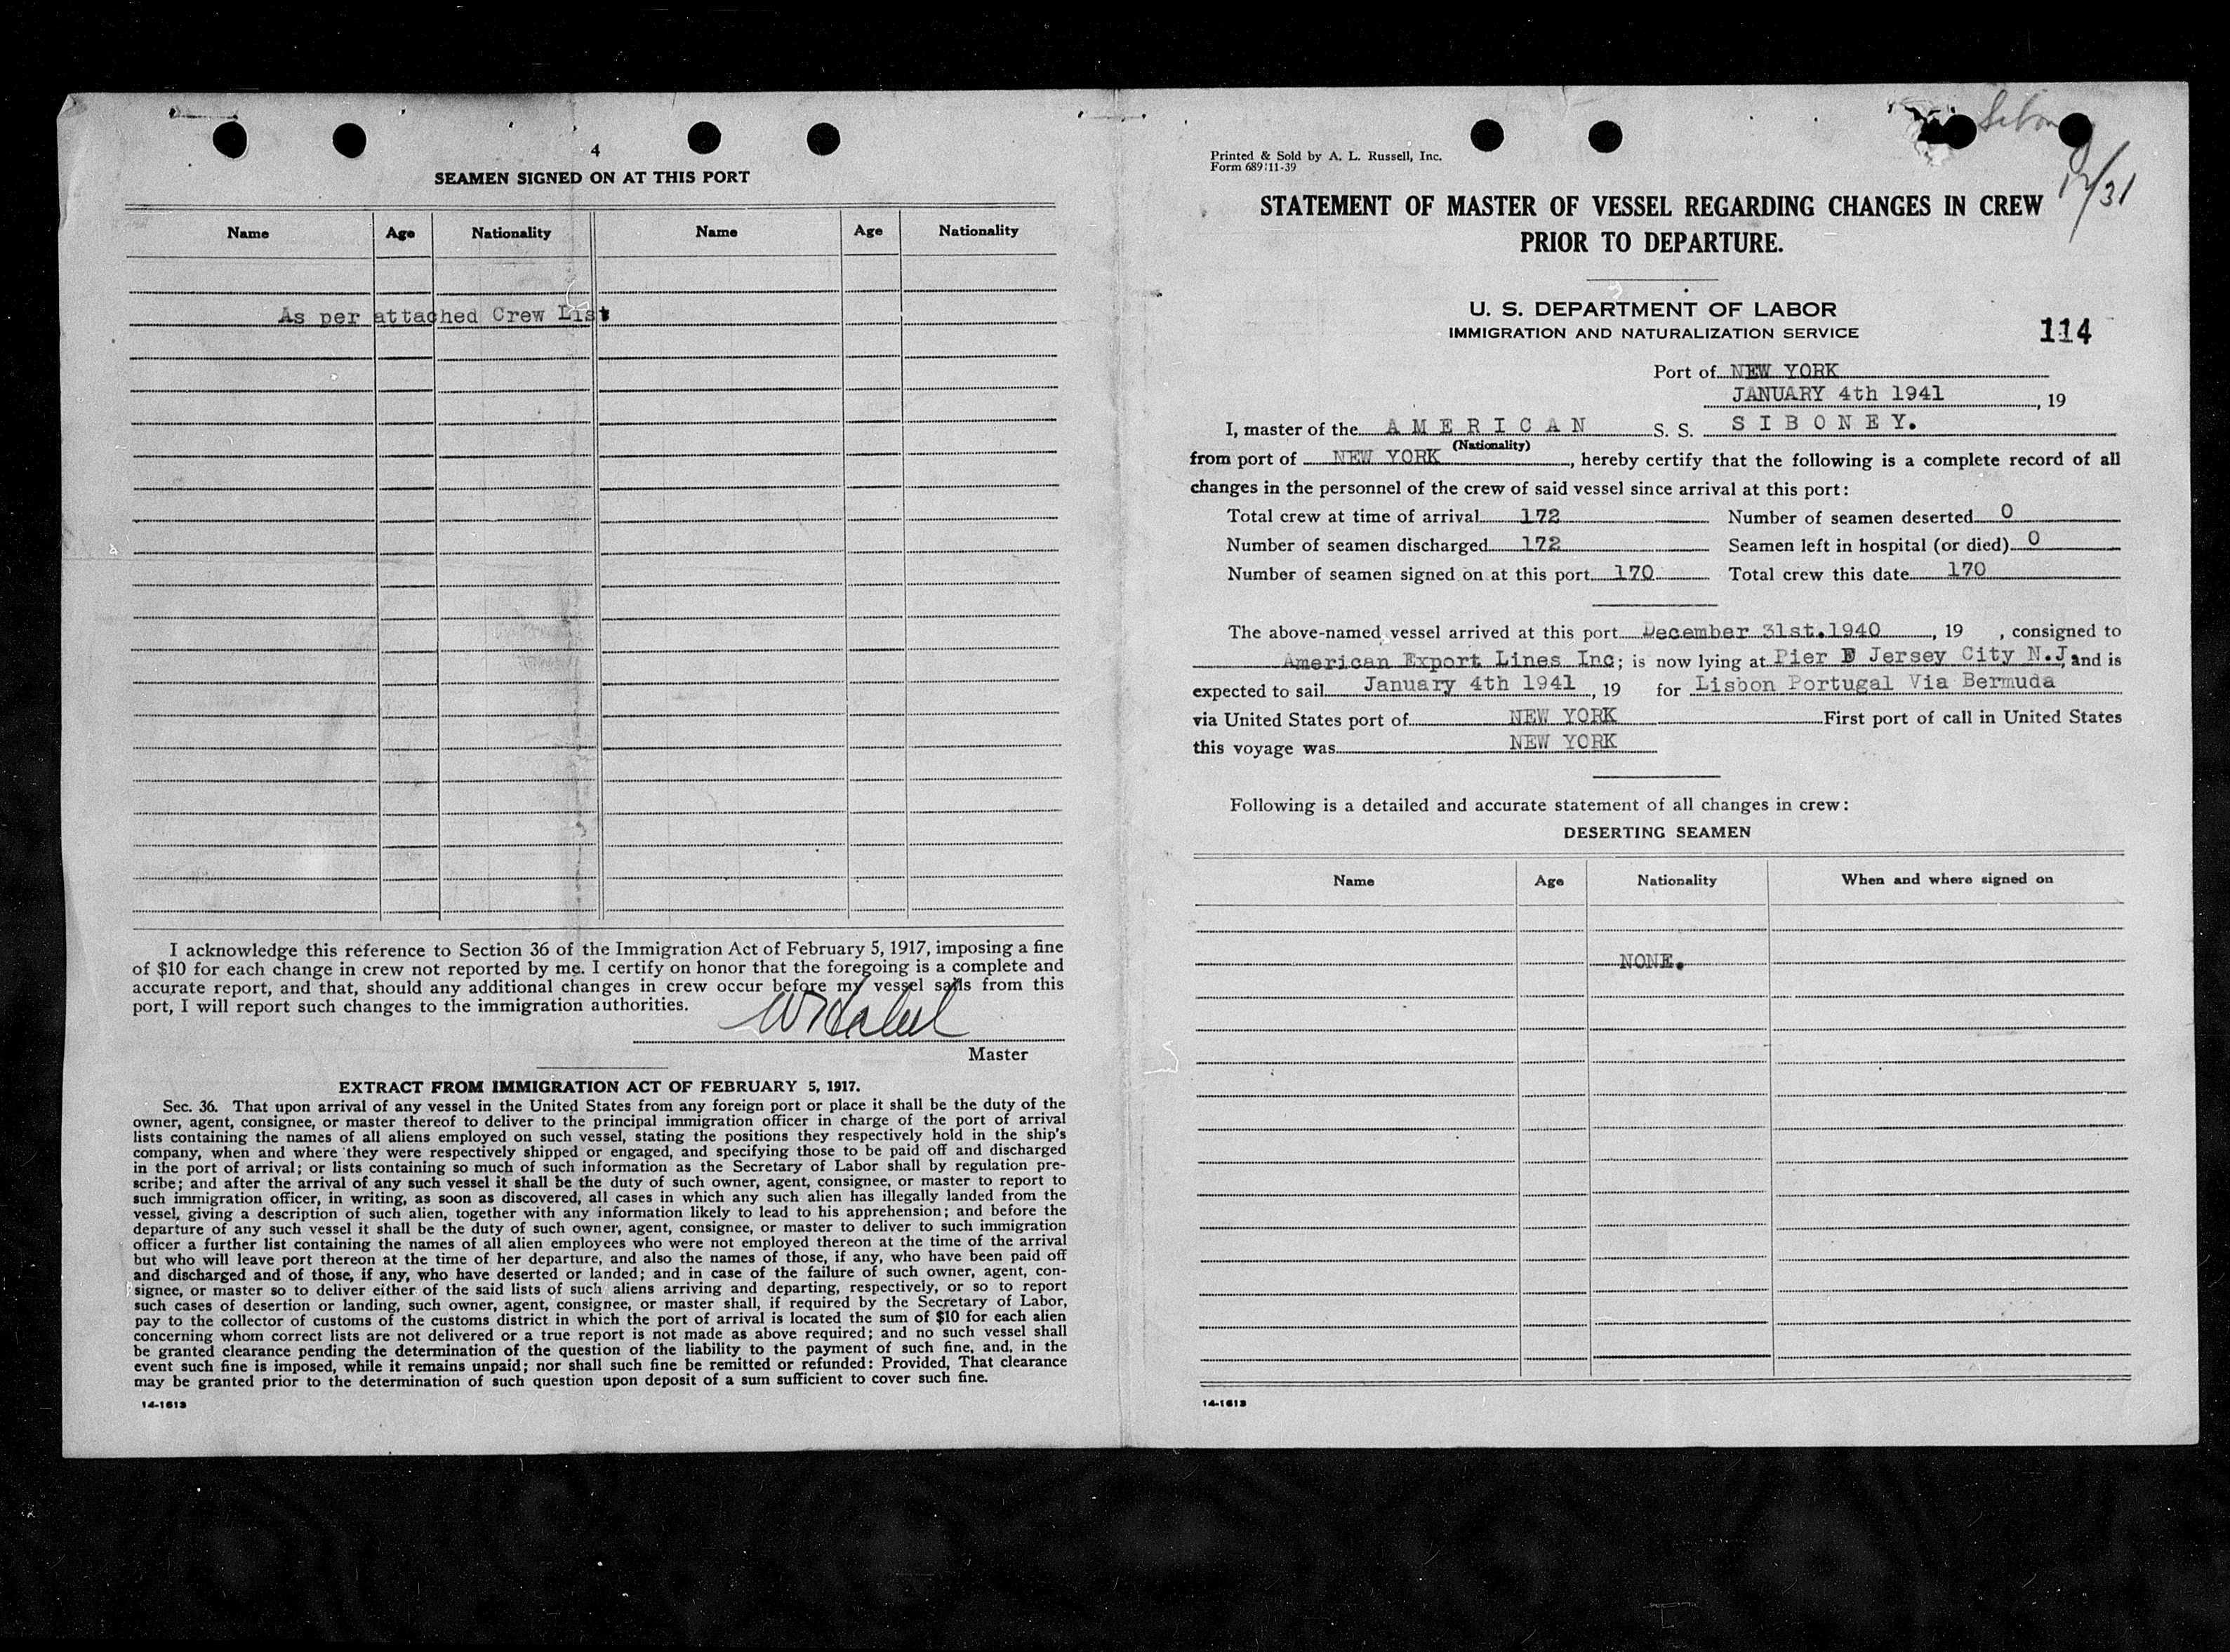 4
SEAMEN SIGNED ON AT THIS PORT
Name Age Nationality Name Age Nationality
As per attached Crew List
I acknowledge this reference to Section 36 of the Immigration Act of February 5, 1917, imposing a fine
of $10 for each change in crew not reported by me. I certify on honor that the foregoing is a complete and
accurate report, and that, should any additional changes in crew occur before my vessel sails from this
port, I will report such changes to the immigration authorities.
Master
EXTRACT FROM IMMIGRATION ACT OF FEBRUARY 5, 1917.
Sec. 36. That upon arrival of any vessel in the United States from any foreign port or place it shall be the duty of the
owner, agent, consignee, or master thereof to deliver to the principal immigration officer in charge of the port of arrival
lists containing the names of all aliens employed on such vessel, stating the positions they respectively hold in the ship's
company, when and where they were respectively shipped or engaged, and specifying those to be paid off and discharged
in the port of arrival; or lists containing so much of such information as the Secretary of Labor shall by regulation pre-
scribe; and after the arrival of any such vessel it shall be the duty of such owner, agent, consignee, or master to report to
such immigration officer, in writing, as soon as discovered, all cases in which any such alien has illegally landed from the
vessel, giving a description of such alien, together with any information likely to lead to his apprehension; and before the
departure of any such vessel it shall be the duty of such owner, agent, consignee, or master to deliver to such immigration
officer a further list containing the names of all alien employees who were not employed thereon at the time of the arrival
but who will leave port thereon at the time of her departure, and also the names of those, if any, who have been paid off
and discharged and of those, if any, who have deserted or landed; and in case of the failure of such owner, agent, con-
signee, or master so to deliver either of the said lists of such aliens arriving and departing, respectively, or so to report
such cases of desertion or landing, such owner, agent, consignee, or master shall, if required by the Secretary of Labor,
pay to the collector of customs of the customs district in which the port of arrival is located the sum of $10 for each alien
concerning whom correct lists are not delivered or a true report is not made as above required; and no such vessel shall
be granted clearance pending the determination of the question of the liability to the payment of such fine, and, in the
event such fine is imposed, while it remains unpaid; nor shall such fine be remitted or refunded: Provided, That clearance
may be granted prior to the determination of such question upon deposit of a sum sufficient to cover such fine.
14-1613
12/31
Printed & Sold by A. L. Russell, Inc.
Form 689:11-39
STATEMENT OF MASTER OF VESSEL REGARDING CHANGES IN CREW
PRIOR TO DEPARTURE.
U. S. DEPARTMENT OF LABOR
IMMIGRATION AND NATURALIZATION SERVICE
114
Port of NEW YORK
JANUARY 4th 1941, 19
I, master of the AMERICAN S. S. SIBONEY.
(Nationality)
from port of NEW YORK, hereby certify that the following is a complete record of all
changes in the personnel of the crew of said vessel since arrival at this port:
Total crew at time of arrival 172 Number of seamen deserted 0
Number of seamen discharged 172 Seamen left in hospital (or died) 0
Number of seamen signed on at this port 170 Total crew this date 170
The above-named vessel arrived at this port December 31st.1940, 19 , consigned to
American Export Lines Inc; is now lying at Pier F Jersey City N.J, and is
expected to sail January 4th 1941, 19 for Lisbon Portugal Via Bermuda
via United States port of NEW YORK First port of call in United States
this voyage was NEW YORK
Following is a detailed and accurate statement of all changes in crew:
DESERTING SEAMEN
Name Age Nationality When and where signed on
NONE.
14-1613